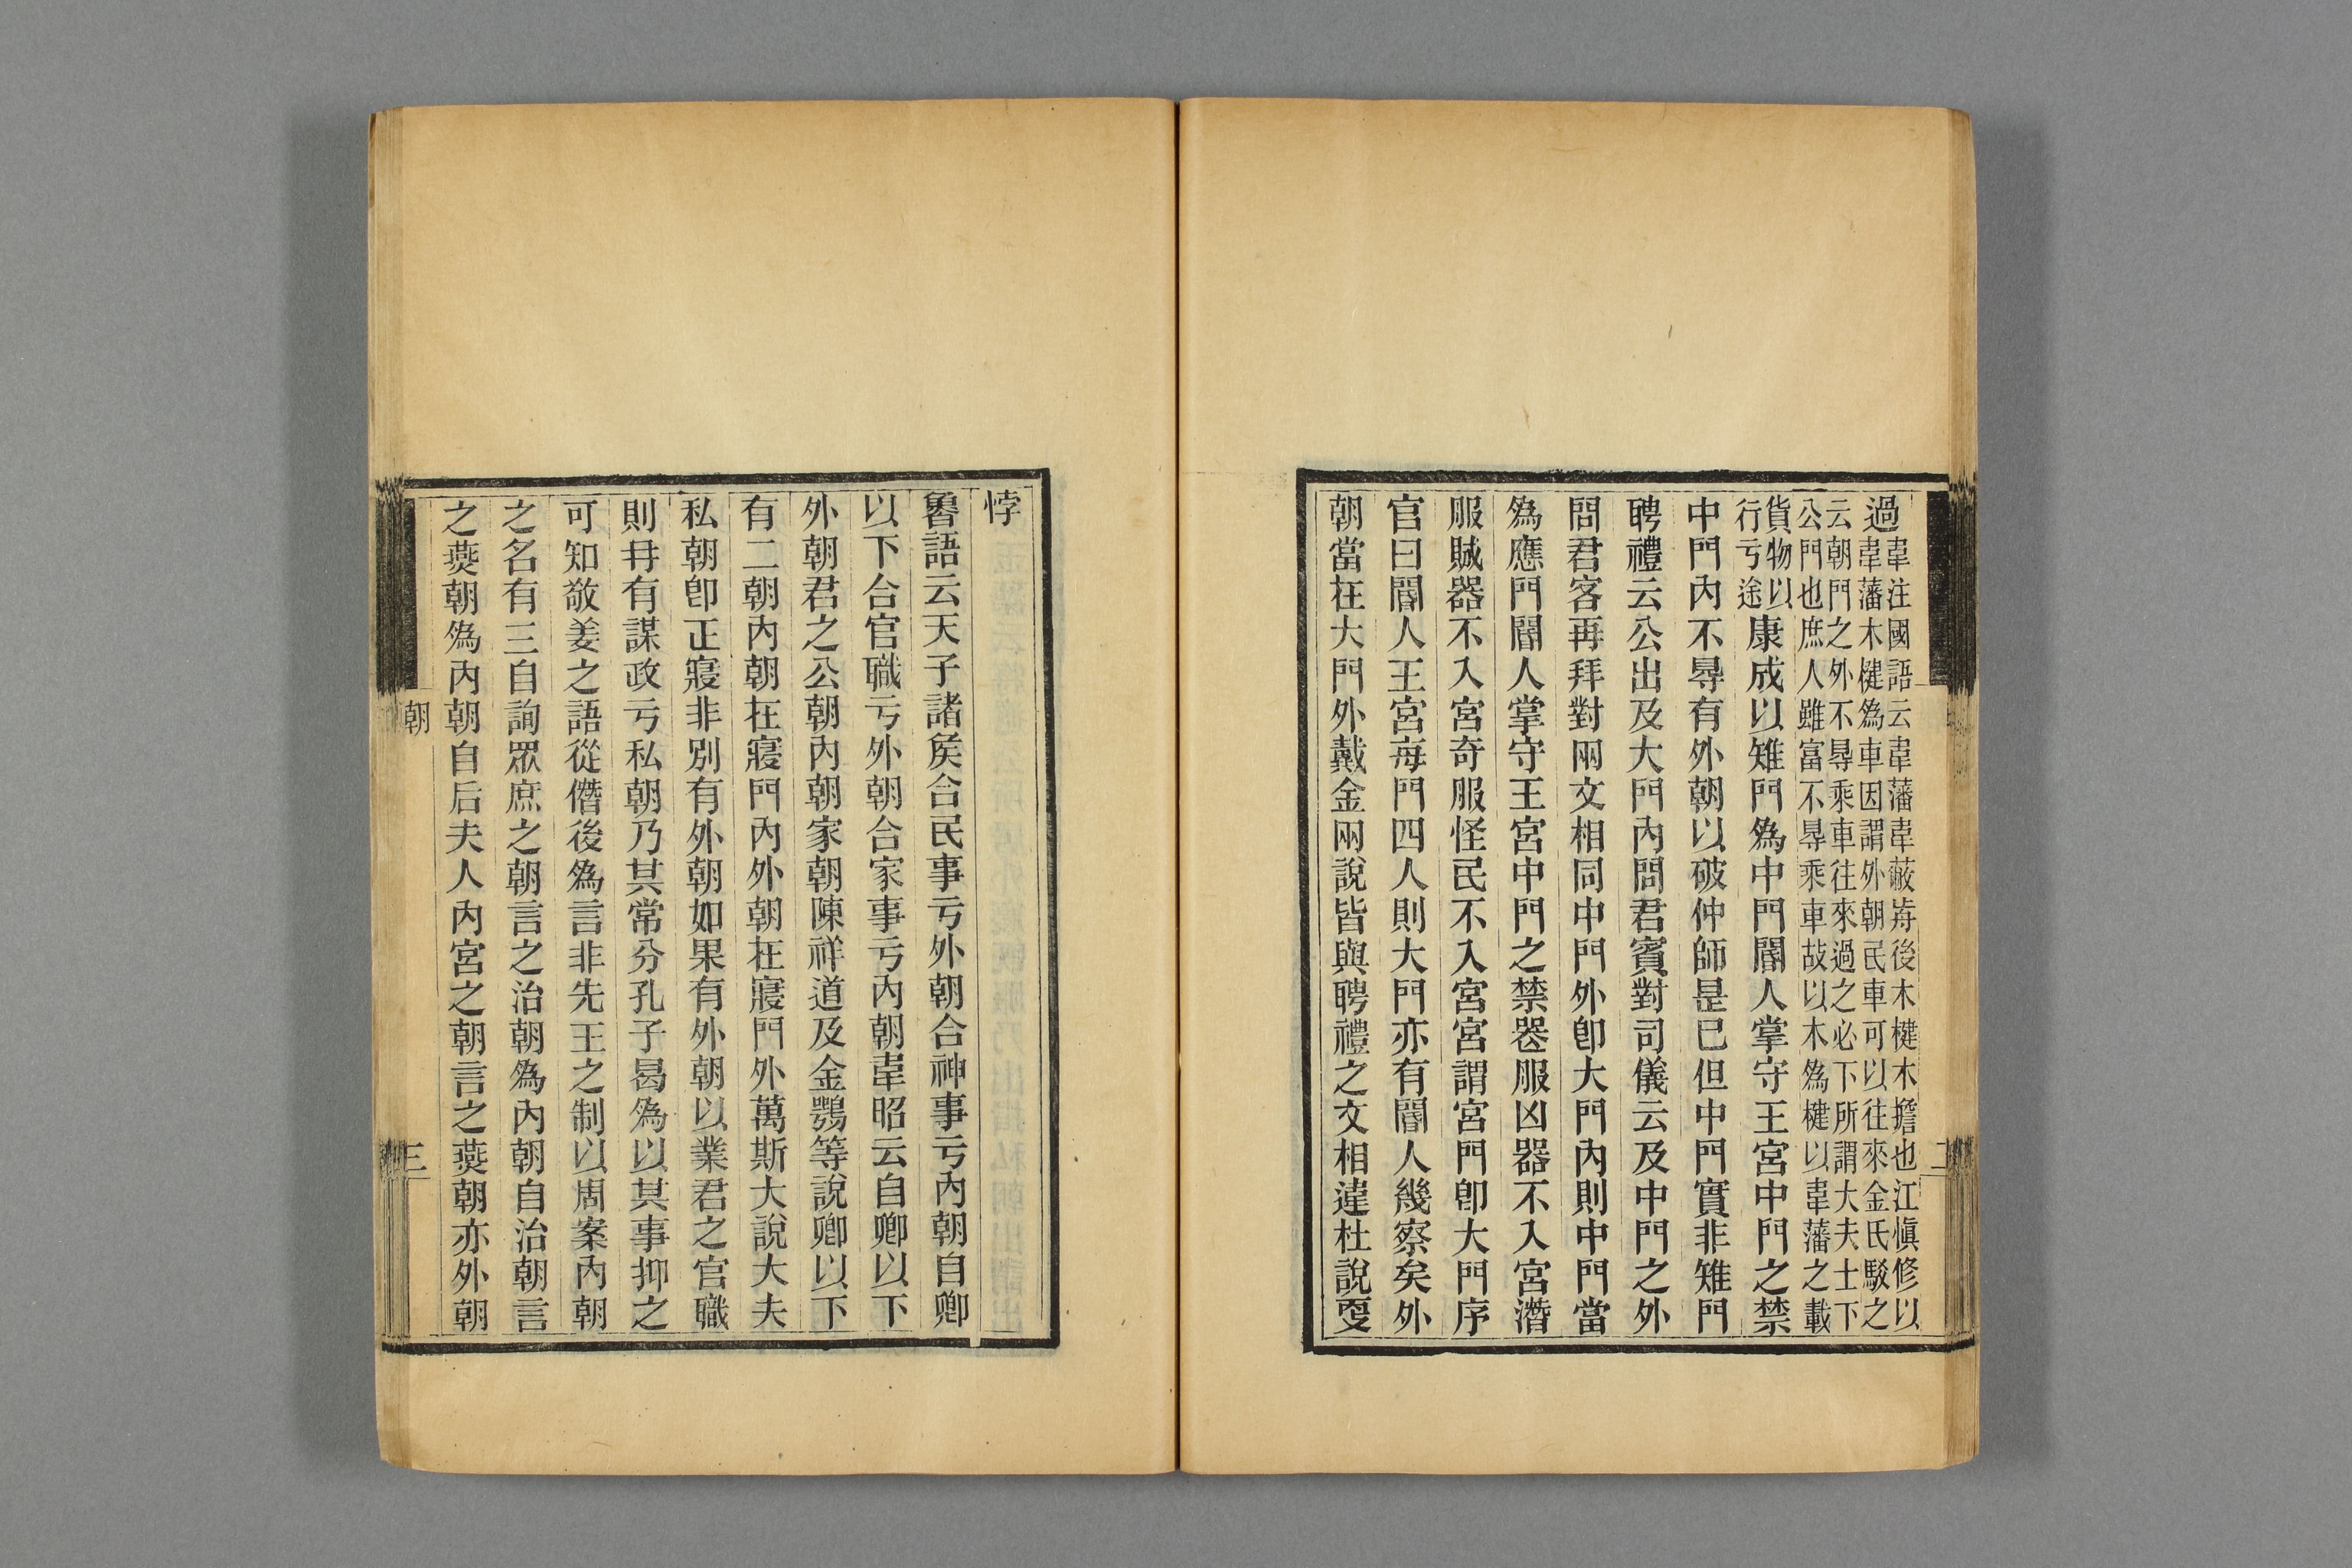 過韋注國語云韋藩韋蔽歬後木楗木擔也江慎修以
韋藩木楗爲車因謂外朝民車可以往來金氏駁之
云朝門之外不㝵乘車往來過之必下所謂大夫士下
公門也庶人雖富不㝵乘車故以木爲楗以韋藩之載
貨物以
行亏途康成以雉門爲中門閽人掌守王宮中門之禁
中門內不㝵有外朝以破仲師是已但中門實非雉門
聘禮云公出及大門內問君賓對司儀云及中門之外
問君客再拜對兩文相同中門外卽大門內則中門當
爲應門閽人掌守王宮中門之禁喪服凶器不入宮潛
服賊器不入宮奇服怪民不入宮宮謂宮門卽大門序
官曰閽人王宮每門四人則大門亦有閽人幾察矣外
朝當在大門外戴金兩說皆與聘禮之文相違杜說更
二
悖
魯語云天子諸矦合民事亏外朝合神事亏內朝自卿
以下合官職亏外朝合家事亏內朝韋昭云自卿以下
外朝君之公朝內朝家朝陳祥道及金鶚等說卿以下
有二朝內朝在寢門內外朝在寢門外萬斯大說大夫
私朝卽正寢非別有外朝如果有外朝以業君之官職
則冄有謀政亏私朝乃其常分孔子曷爲以其事抑之
可知敬姜之語從僭後爲言非先王之制以周案內朝
之名有三自詢眾庶之朝言之治朝爲內朝自治朝言
之燕朝爲內朝自后夫人內宮之朝言之燕朝亦外朝
朝
三